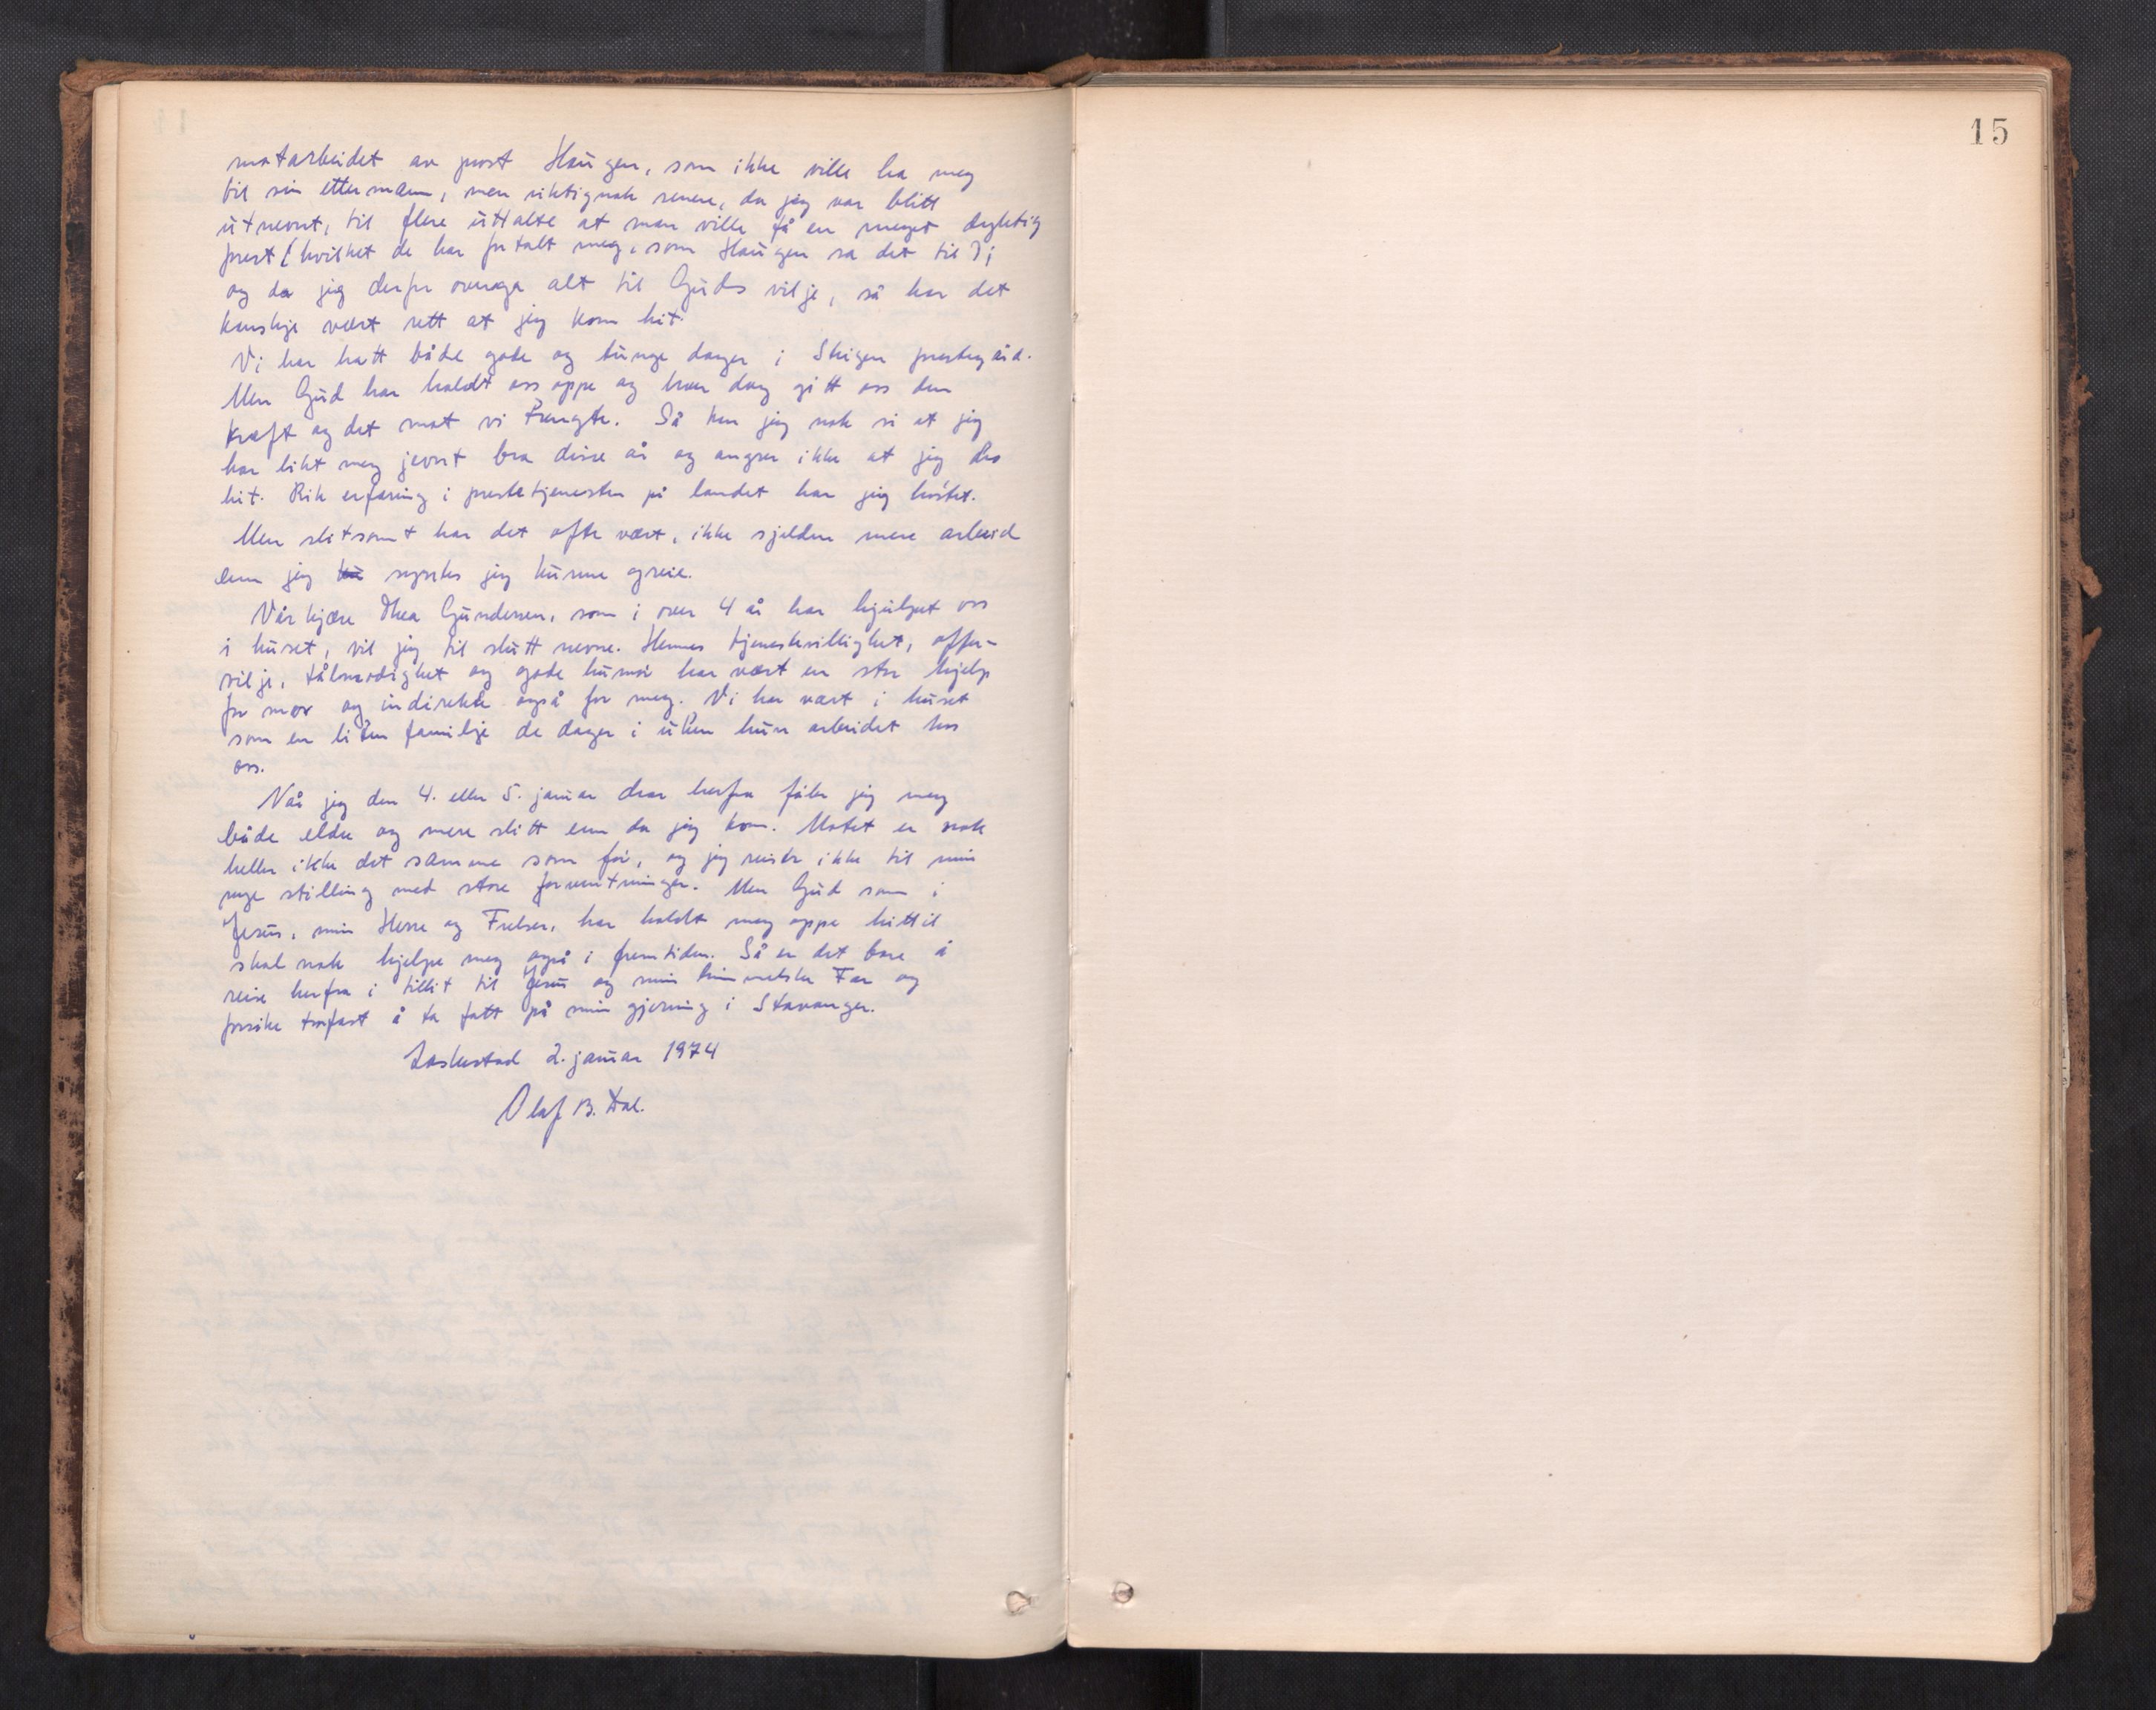 15
motarbeidet av prost Haugen, som ikke ville ha meg
til sin ettermann, men riktignok senere, da jeg var blitt
utnevnt, til flere uttalte at man ville få en meget dyktig
prest (hvilket de har fortalt meg, som Haugen sa det til);
og da jeg derfor overga alt til Guds vilje, så har det
kanskje vært rett at jeg kom hit.
Vi har hatt både gode og tunge dager i Steigen prestegård.
Men Gud har holdt oss oppe og hver dag gitt oss den
kraft og det mot vi trengte. Så kan jeg nok si at jeg
har likt meg jevnt bra disse år og angrer ikke at jeg dro
hit. Rik erfaring i prestetjenesten på landet har jeg høstet.
Men slitsomt har det ofte vært, ikke sjelden mere arbeid
enn jeg syntes jeg kunne greie.
Vår kjære Thea Gundersen, som i over 4 år har hjulpet oss
i huset, vil jeg til slutt nevne. Hennes tjenestvillighet, offer-
vilje, tålmodighet og gode humør har vært en stor hjelp
for mor og indirekte også for meg. Vi har vært i huset
som en liten familje de dager i uken hun arbeidet hos
oss.
Når jeg den 4. eller 5. januar drar herfra føler jeg meg
både eldre og mere slitt enn da jeg kom. Motet er nok
heller ikke det samme som før, og jeg reiser ikke til min
nye stilling med store forventninger. Men Gud som i
Jesus, min Herre og Frelser, har holdt meg oppe hittil
skal nok hjelpe meg også i fremtiden. Så er det bare å
reise herfra i tillit til Jesus og min himmelske Far og
forsøke trofast å ta fatt på min gjerning i Stavanger.
Laskestad 2. januar 1974
Olaf B. Dal.